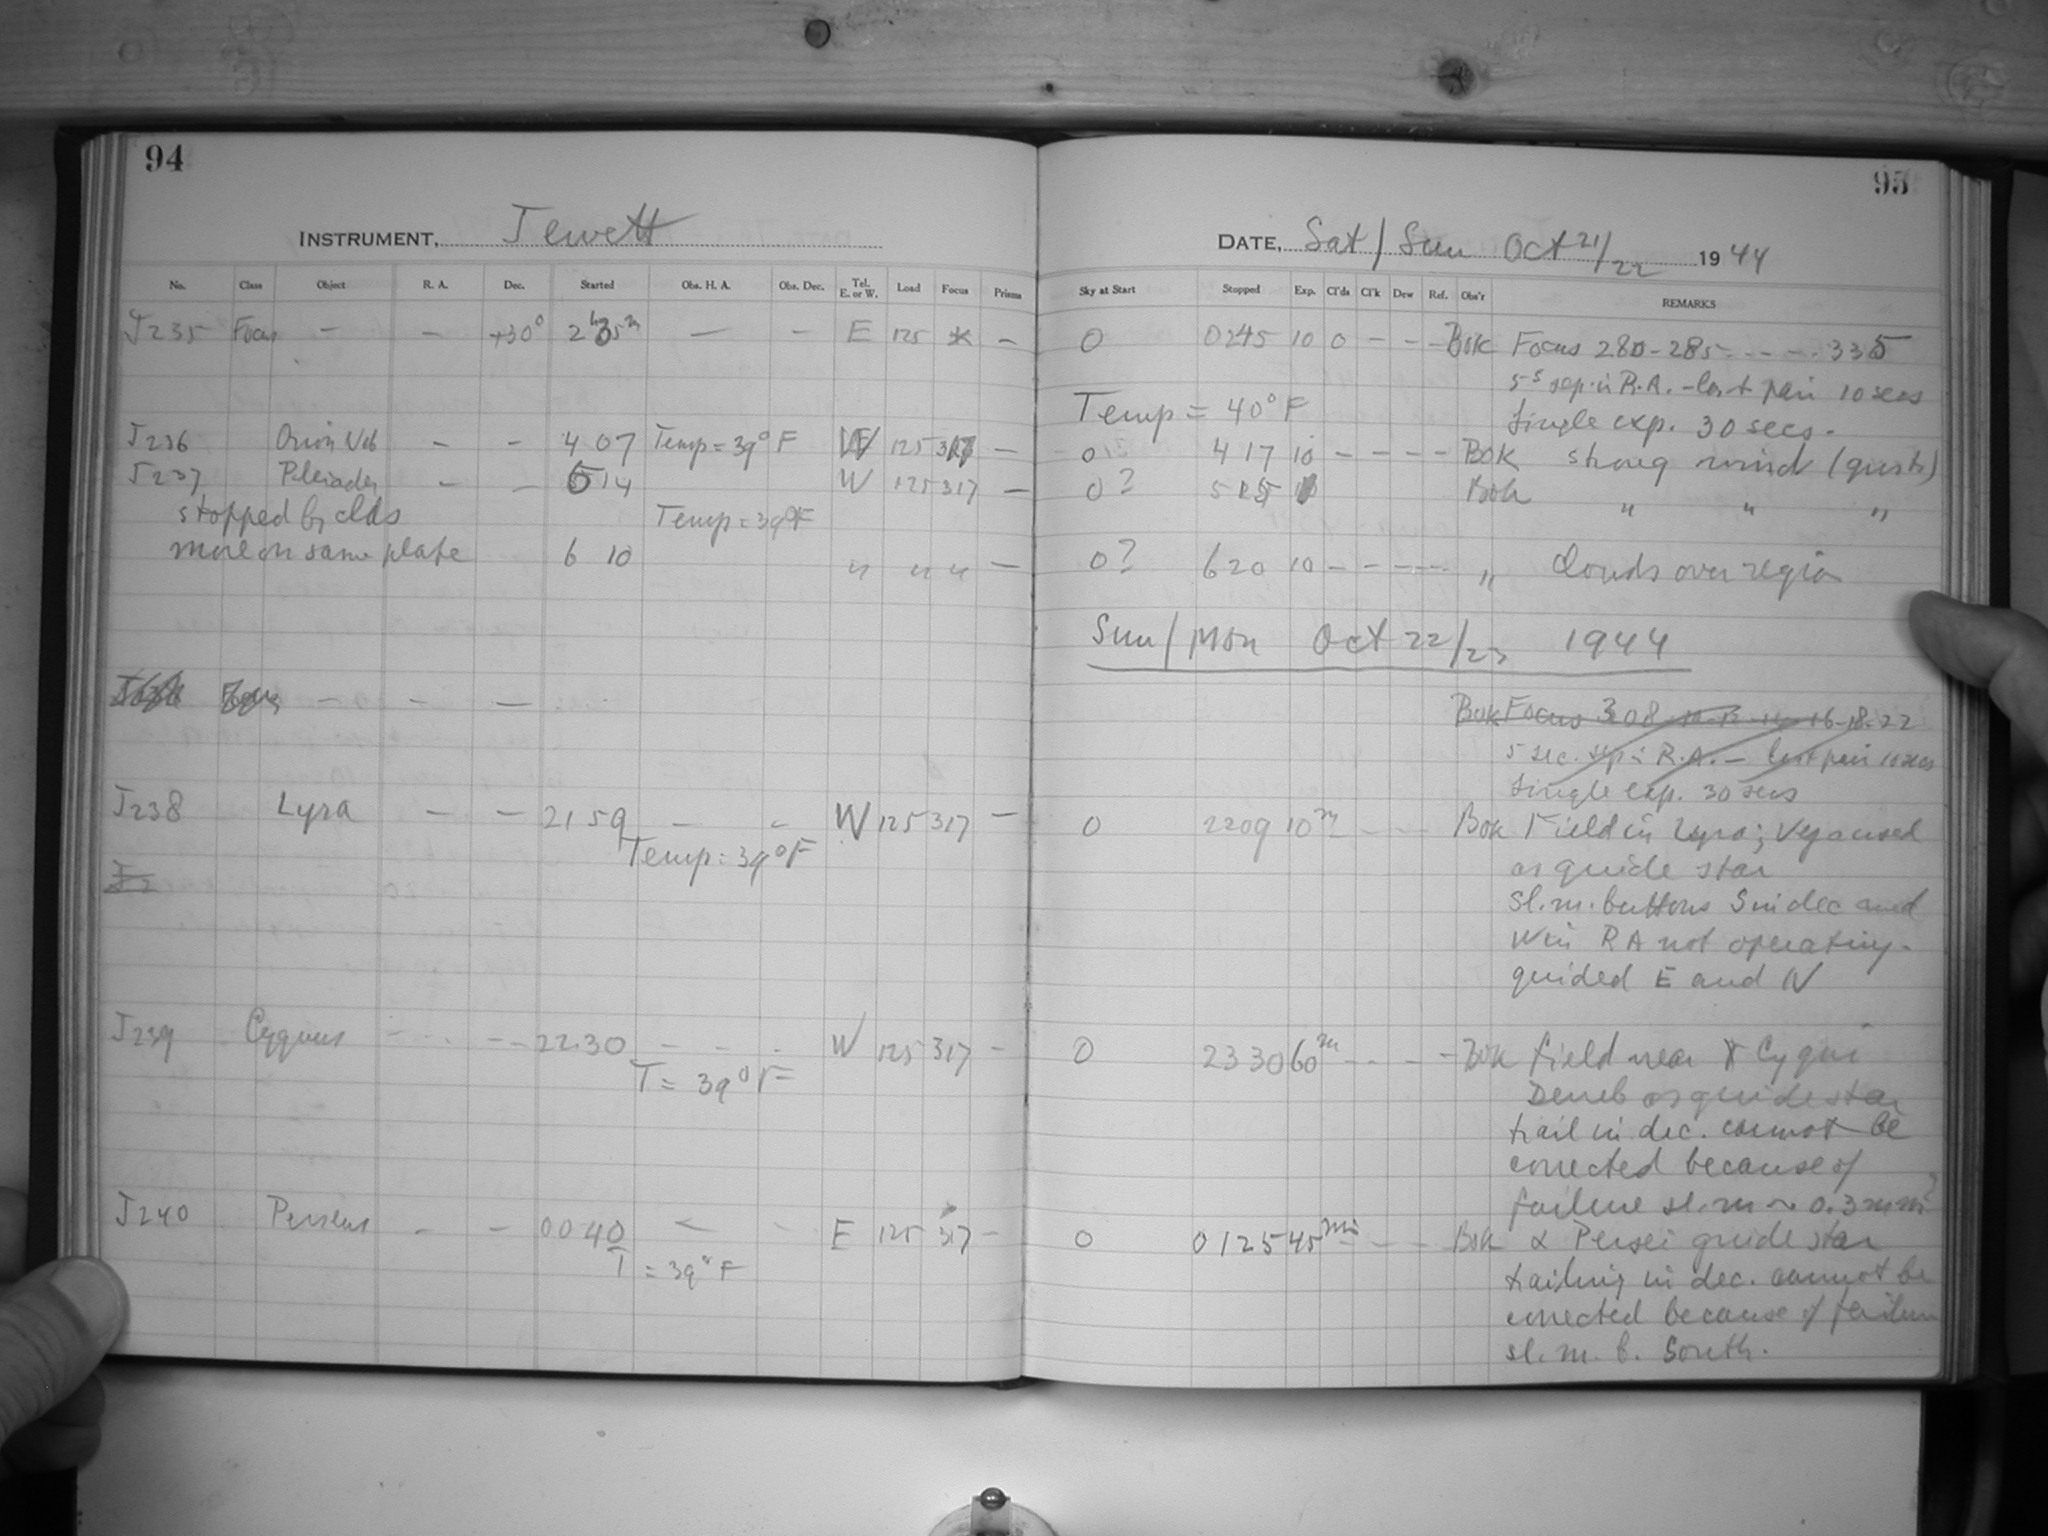 94
INSTRUMENT, Jewett
No. Class Object R. A. Dec. Started Obs. H. A. Obs. Dec. Tel. E. or W. Load Focus Prisms
J235 Focus — — +30° 2h35m — — E 125 * —
J236 Orion Neb — — 4 07 Temp = 39°F W 125 317 —
J237 Pleiades — — 5 14 W 125 317 —
stopped by clds Temp = 39°F
more on same plate 6 10 " " " —
Focus — — —
J238 Lyra — — 21 59 — — W 125 317 —
Temp: 39°F
J2
J239 Cygnus - - - -- 22 30 — - - W 125 317 —
T = 39°F
J240 Perseus - — 00 40 — - E 125 317 —
T = 39°F
95
DATE, Sat/Sun Oct 21/22 1944
Sky at Start Stopped Exp. Cl'ds Cl'k Dew Ref. Obs'r REMARKS
0 0245 10 0 - - - Bok Focus 280-285 - - - - 335
5s sep. in R.A. - last pair 10 secs
Temp = 40°F
Single exp. 30 secs.
0 4 17 10 - - - - Bok strong wind (gusts)
0? 5 Bok " " "
0? 620 10 - - - - - " Clouds over region
Sun/Mon Oct 22/23 1944
Bok Focus 308-10-12-14-16-18-22
5 sec. sep. in R.A. — last pair 10 secs
Single exp. 30 secs
0 2209 10m - - - Bok Field in Lyra; Vega used
as guide star
sl. m. buttons S in dec and
W in RA not operating -
guided E and N
0 2330 60m - - - - Bok field near γ Cygni
Deneb as guide star
trail in dec. cannot be
corrected because of
failure sl. m ~ 0.3 mm?
0 0125 45min - - - Bok α Persei guide star
trailing in dec. cannot be
corrected because of failure
sl. m. b. South.